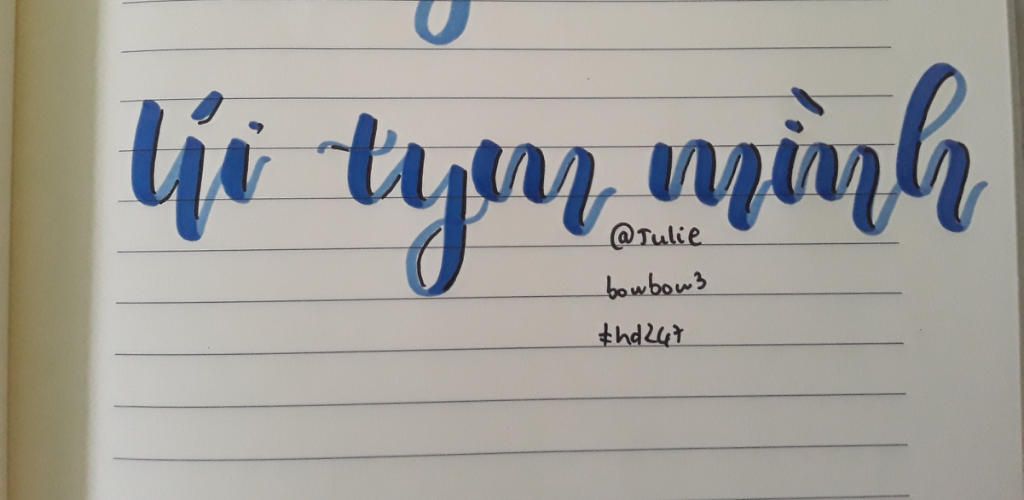 tym mình
@Julie
bowbow3
#hd247